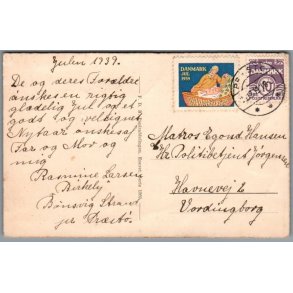 Julen 1939.
De og deres Forældre
ønskes en rigtig
glædelig Jul og et
godt og velsignet
Nytaar ønskes af
Far og Mor og
mig
Rasmine Larsen
Birkely
Bønsvig Strand
pr Præstø.
DANMARK
JUL
1939
DANMARK
10
Matros Egond Hansen
Hr Politibetjent Jørgensen
Havnevej 6
Vordingborg